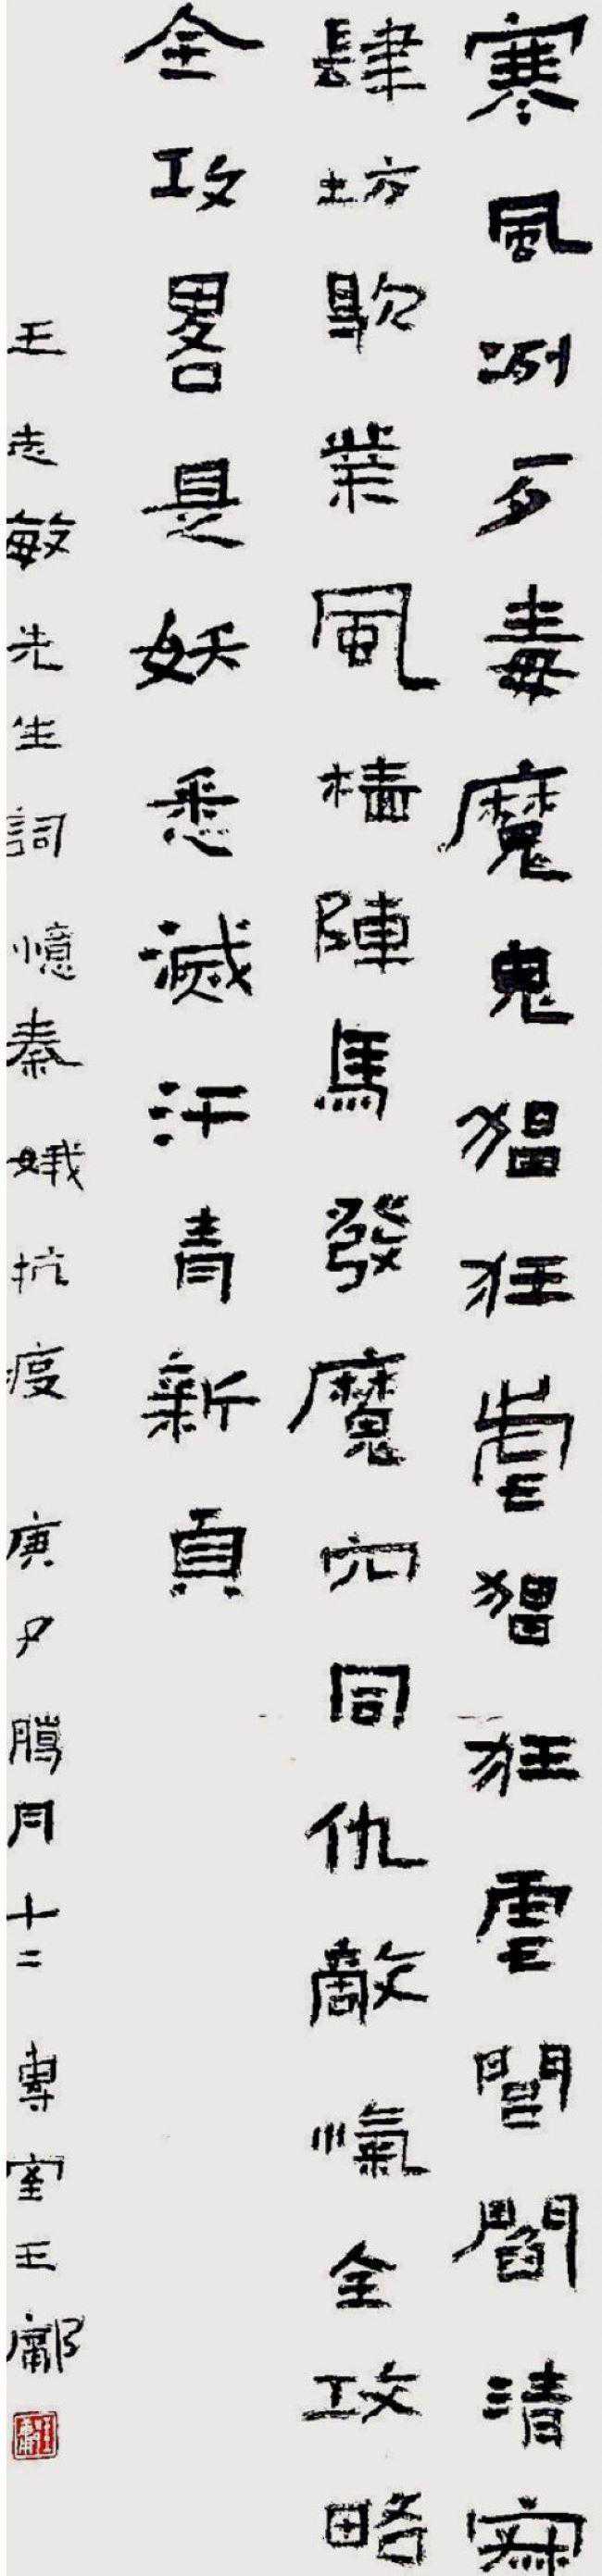 寒風冽歹毒魔鬼猖狂虐猖狂虐閭閻清寂
肆坊歇業風樯陣馬發魔穴同仇敵愾全攻略
全攻畧是妖悉滅汗青新頁
王志敏先生詞憶秦娥抗疫 庚夕臈月十二 專室王鄘